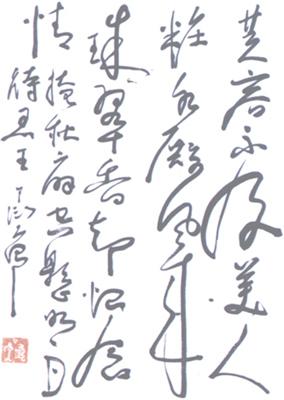 芙蓉不及美人
粧水殿風来
珠翠香却恨含
情掩秋扇空懸明月
待君王